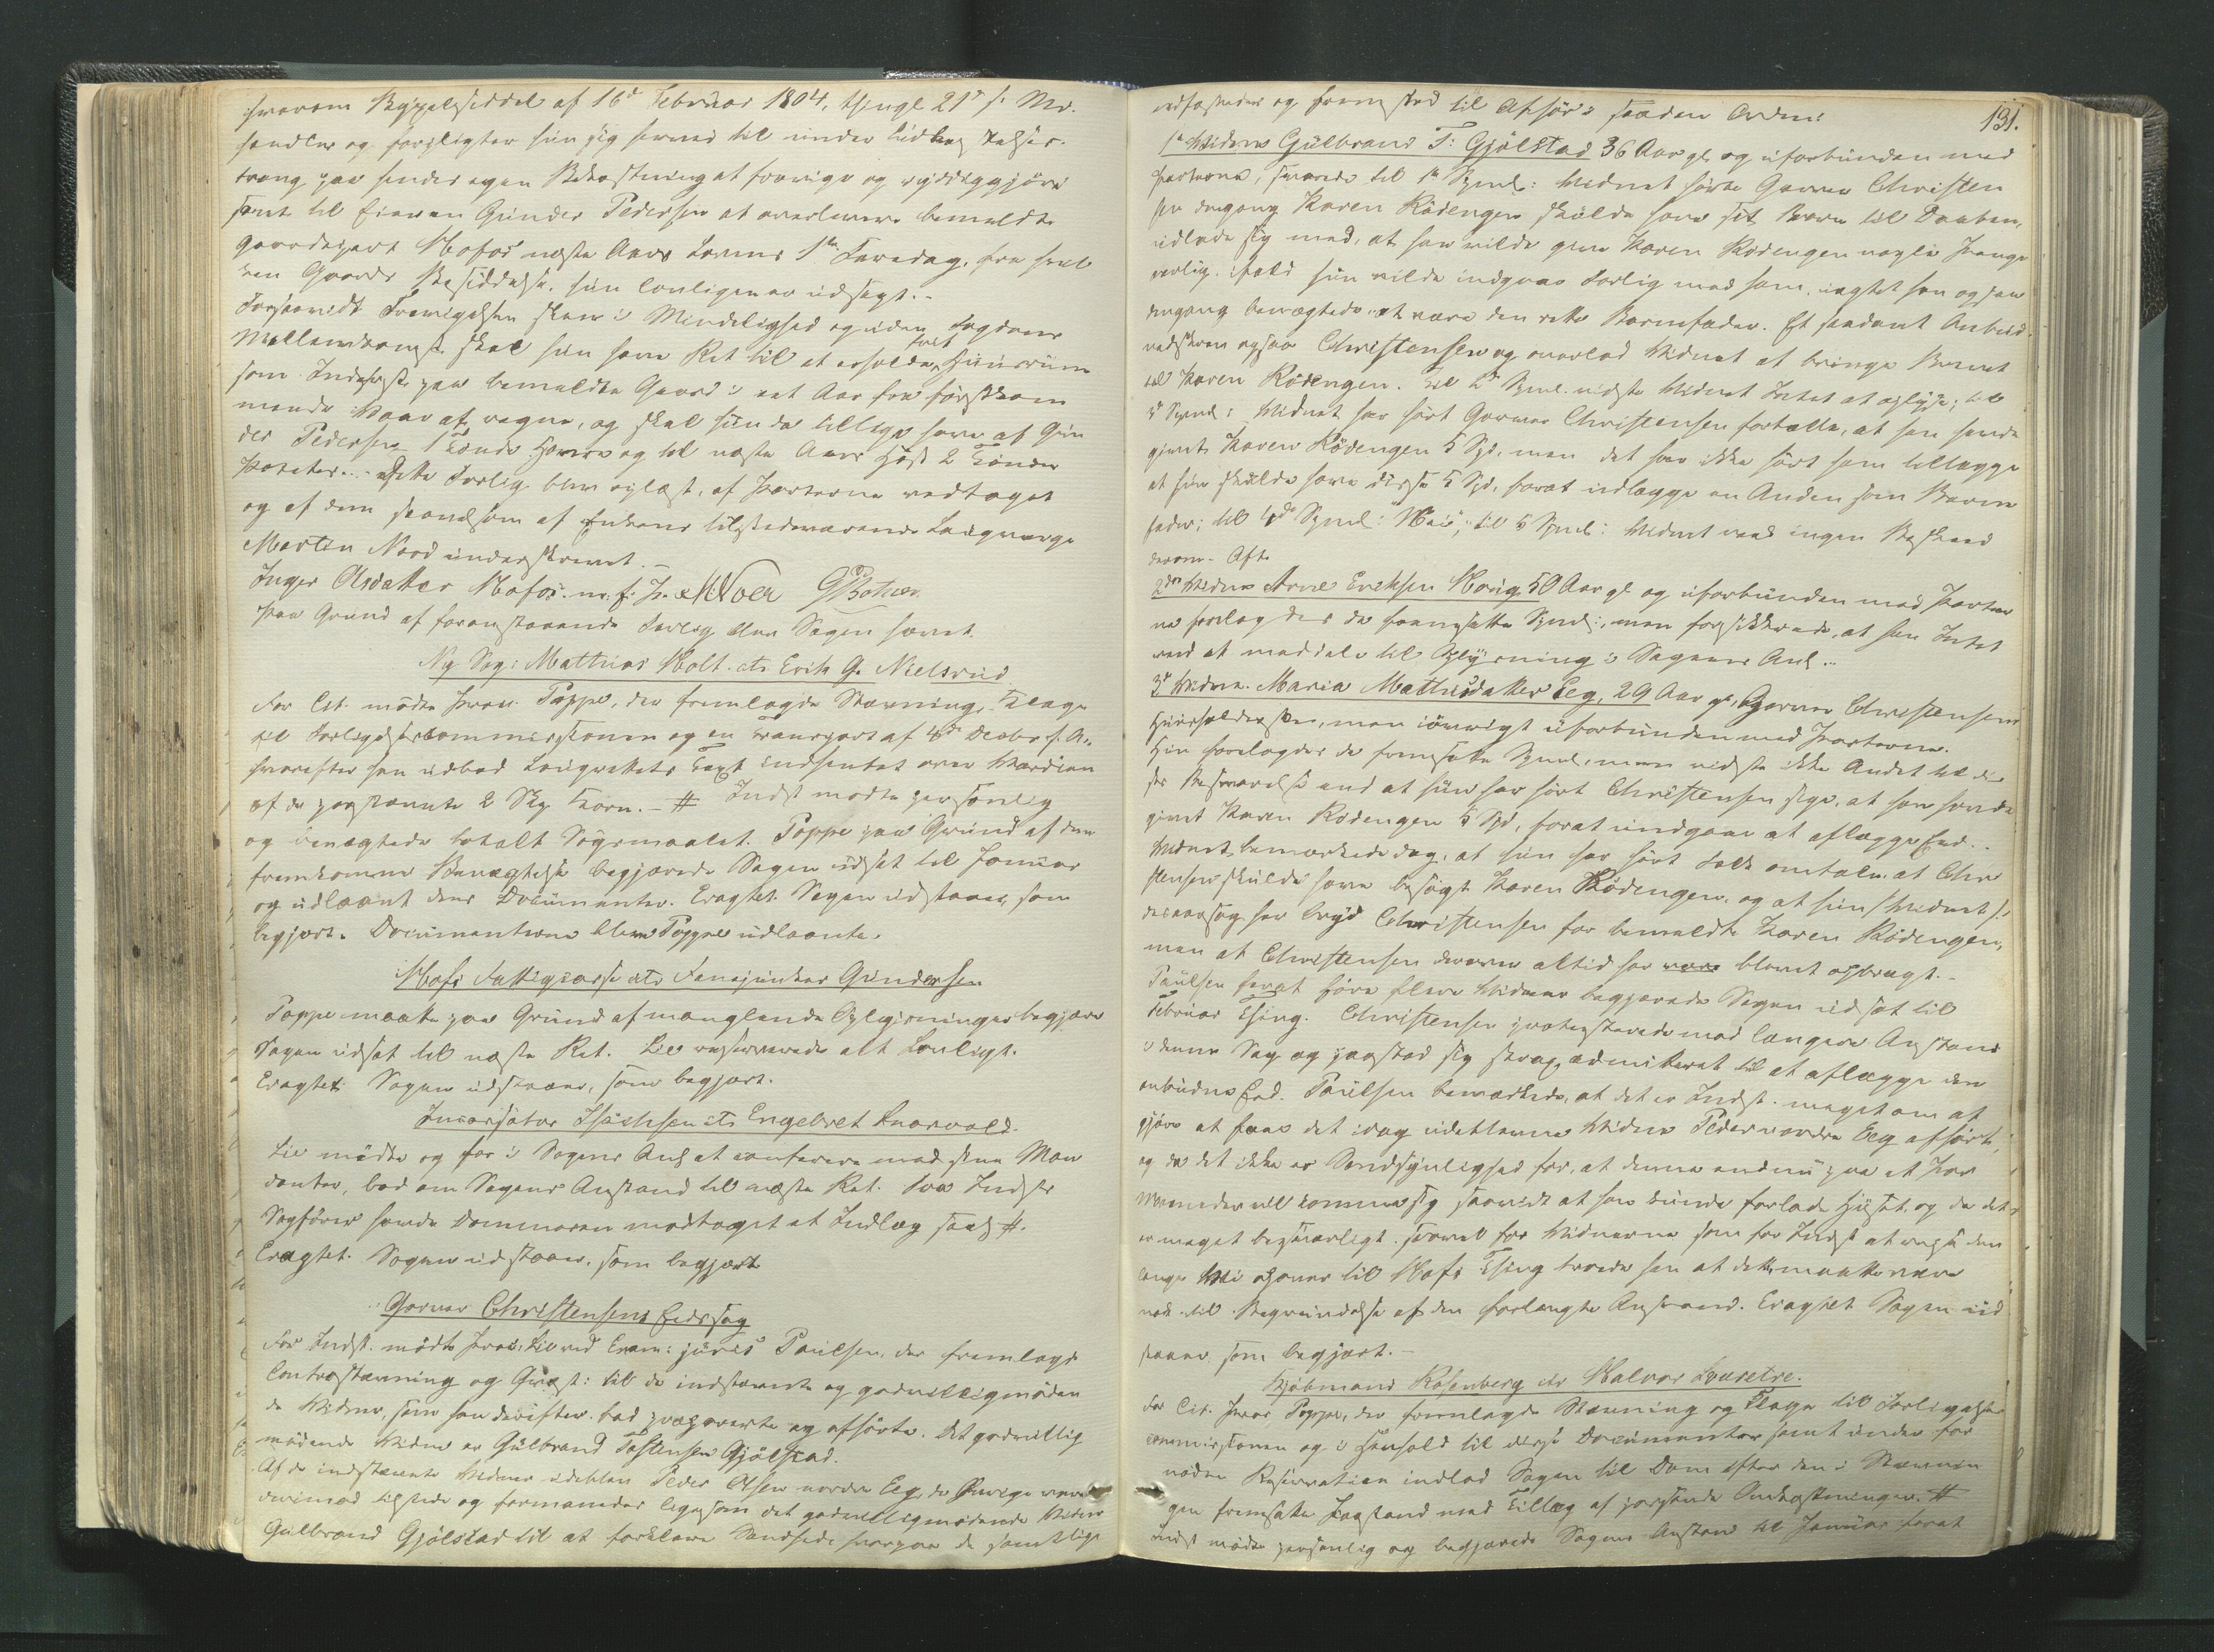 hvorom Bygselseddel af 16de Februar 1804, thingl. 21de s. Md.
handler og forpligter hun sig herved til under Udkastelses-
tvang paa hendes egen Bekostning at fravige og ryddiggjøre
samt til Eieren Gunder Pedersen at overlevere bemeldte
Gaardepart Hofos næste Aars Høveds 1ste Faredag, fra hvil
ken Gaards Besiddelse hun lovligen er udsagt.-
Forsaavidt Fravigelsen skeer i Mindelighed og uden Fogdens
Mellemkomst skal hun have Ret til at erholde frit Huusrum
som Inderst paa bemeldte Gaard i eet Aar fra førstkom
mende Vaar af regnet, og skal hun da tillige have af Gun
der Pedersen 1 Tønde Havre og til næste Aars Høst 2 Tønder
Poteter. - Dette Forlig blev oplæst, af Parterne vedtaget
og af dem saavelsom af Enkens tilstedeværende Laugværge
Martin Noed underskrevet. -
Inger Olsdatter Hofos m. f. P. MNoer GPBother
Paa Grund af foranstaaende Forlig blev Sagen hævet.
Ny Sag: Mathias Holt ctr Erik G. Nielsrud
For Cit. mødte Proc. Poppe, der fremlagde Stævning, Klage
til Forligelsescommissionen og en Transport af 4de Decbr f. A.,
hvorefter han udbad Laugrettets Taxt indhentet over Værdien
af de paastævnte 2 Skp Korn. - # Indst mødte personlig
og benægtede totalt Søgsmaalet. Poppe paa Grund af den
fremkomne Benægtelse begjærede Sagen udsat til Januar
og udlaant dens Documenter. Eragtet: Sagen udstaaer, som
begjært. Documenterne bleve Poppe udlaante.
Hofs Fattigcasse ctr Fanejunker Gundersen
Poppe maatte paa Grund af manglende Oplysninger begjære
Sagen udsat til næste Ret. Lie reserverede alt Lovligt.
Eragtet: Sagen udstaaer, som begjært.
Incassator Isachsen ctr Engebret Snarvold.
Lie mødte og for i Sagens Anl. at conferere med sin Man
dantes, bad om Sagens Anstand til næste Ret. Fra Indsts
Sagfører havde Dommeren modtaget et Indlæg saal. #.
Eragtet: Sagen udstaaer, som begjært
Garver Christensens Eedssag
For Indst. mødte Proc. Lie ved Exam: juris Paulsen, der fremlagde
Contrastævning og Qvæst: til de indstævnte og godvilligmøden
de Vidner, som han derefter bad præparerte og afhørte. Det godvillig
mødende Vidne er Gulbrand Tostensen Gjølstad.
Af de indstævnte Vidner udeblev Peder Olsen nordre Eeg, de Øvrige vare
derimod tilstede og formanedes ligesom det godvilligmødende Vidne
Gulbrand Gjølstad til at forklare Sandhed, hvorpaa de samtlige
131.
edfæstedes og fremstod til Afhør i saadan Orden:
1ste Vidne Gulbrand T: Gjølstad 36 Aar gl. og uforbunden med
Parterne, svarede til 1ste Spml: Vidnet hørte Garver Christen
sen dengang Karen Rødengen skulde have sit Barn til Daaben,
udlade sig med, at han vilde give Karen Rødengen nogle Penge
nemlig ifald hun vilde indgaae Forlig med ham, uagtet han ogsaa
dengang benægtede at være den rette Barnefader. Et saadant Anbud
nedskrev ogsaa Christensen og overlod Vidnet at bringe Brevet
til Karen Rødengen. Til 2det Spml. vidste Vidnet Intet at oplyse; til
3de Spml: Vidnet har hørt Garver Christensen fortælle, at han havde
givet Karen Rødengen 5 Spd, men det har ikke hørt ham tillægge
at hun skulde have disse 5 Spd, forat udlægge en Anden som Barne
fader; til 4de Spml: Nei; til 5 Spml: Vidnet veed ingen Beskeed
derom - Aftr.
2det Vidne Arne Ericksen Honig 50 Aar gl og uforbunden med Parter
ne forelagdes de fremsatte Spml:, men forsikkrede, at han Intet
veed at meddele til Oplysning i Sagens Anl..
3de Vidne. Maria Mathisdatter Eeg, 29 Aar gl, Garver Christensens
Huusholderske, men iøvrigt uforbunden med Parterne.
Hun forelagdes de fremsatte Spml, men vidste ikke Andet til dis
ses Besvarelse end at hun har hørt Christensen sige, at han havde
givet Karen Rødengen 5 Spd, forat undgaae at aflægge Eed. -
Vidnet bemærkede dog, at hun har hørt Folk omtale at Chri
stensen skulde have besøgt Karen Rødengen, og at hun (Vidnet) i
desaarsag har brydt Christensen for bemeldte Karen Rødengen,
men at Christensen derover altid har blevet opbragt. -
Paulsen forat føre flere Vidner begjærede Sagen udsat til
Februar Thing. Christensen protesterede mod længere Anstand
i denne Sag og paastod sig strax admitteret til at aflægge den
anbudne Eed. Paulsen bemærkede, at det er Indst. meget om at
gjøre at faae det idag udeblevne Vidne Peder nordre Eeg afhørt,
og da det ikke er Sandsynlighed for, at denne endnu paa et Par
Maaneder vil komme sig saavidt at han kunde forlade Huset, og da det
er meget besværligt saavel for Vidnerne som for Indst at reise den
lange Vei ofvener til Hofs Thing troede han at dette maatte være
nok til Begrundelse af den forlangte Anstand. Eragtet Sagen ud
staaer som begjært. -
Kjøbmand Rosenberg ctr Halvor Lveretre.
For Cit. Proc. Poppe, der fremlagde Stævning og Klage til Forligelses
commissionen og i Henhold til disse Documenter samt under for
nøden Reservation indlod Sagen til Dom efter den i Stævnin
gen fremsatte Paastand med Tillæg af passende Omkostninger. #
Indst mødte personlig og begjærede Sagens Anstand til Januar forat